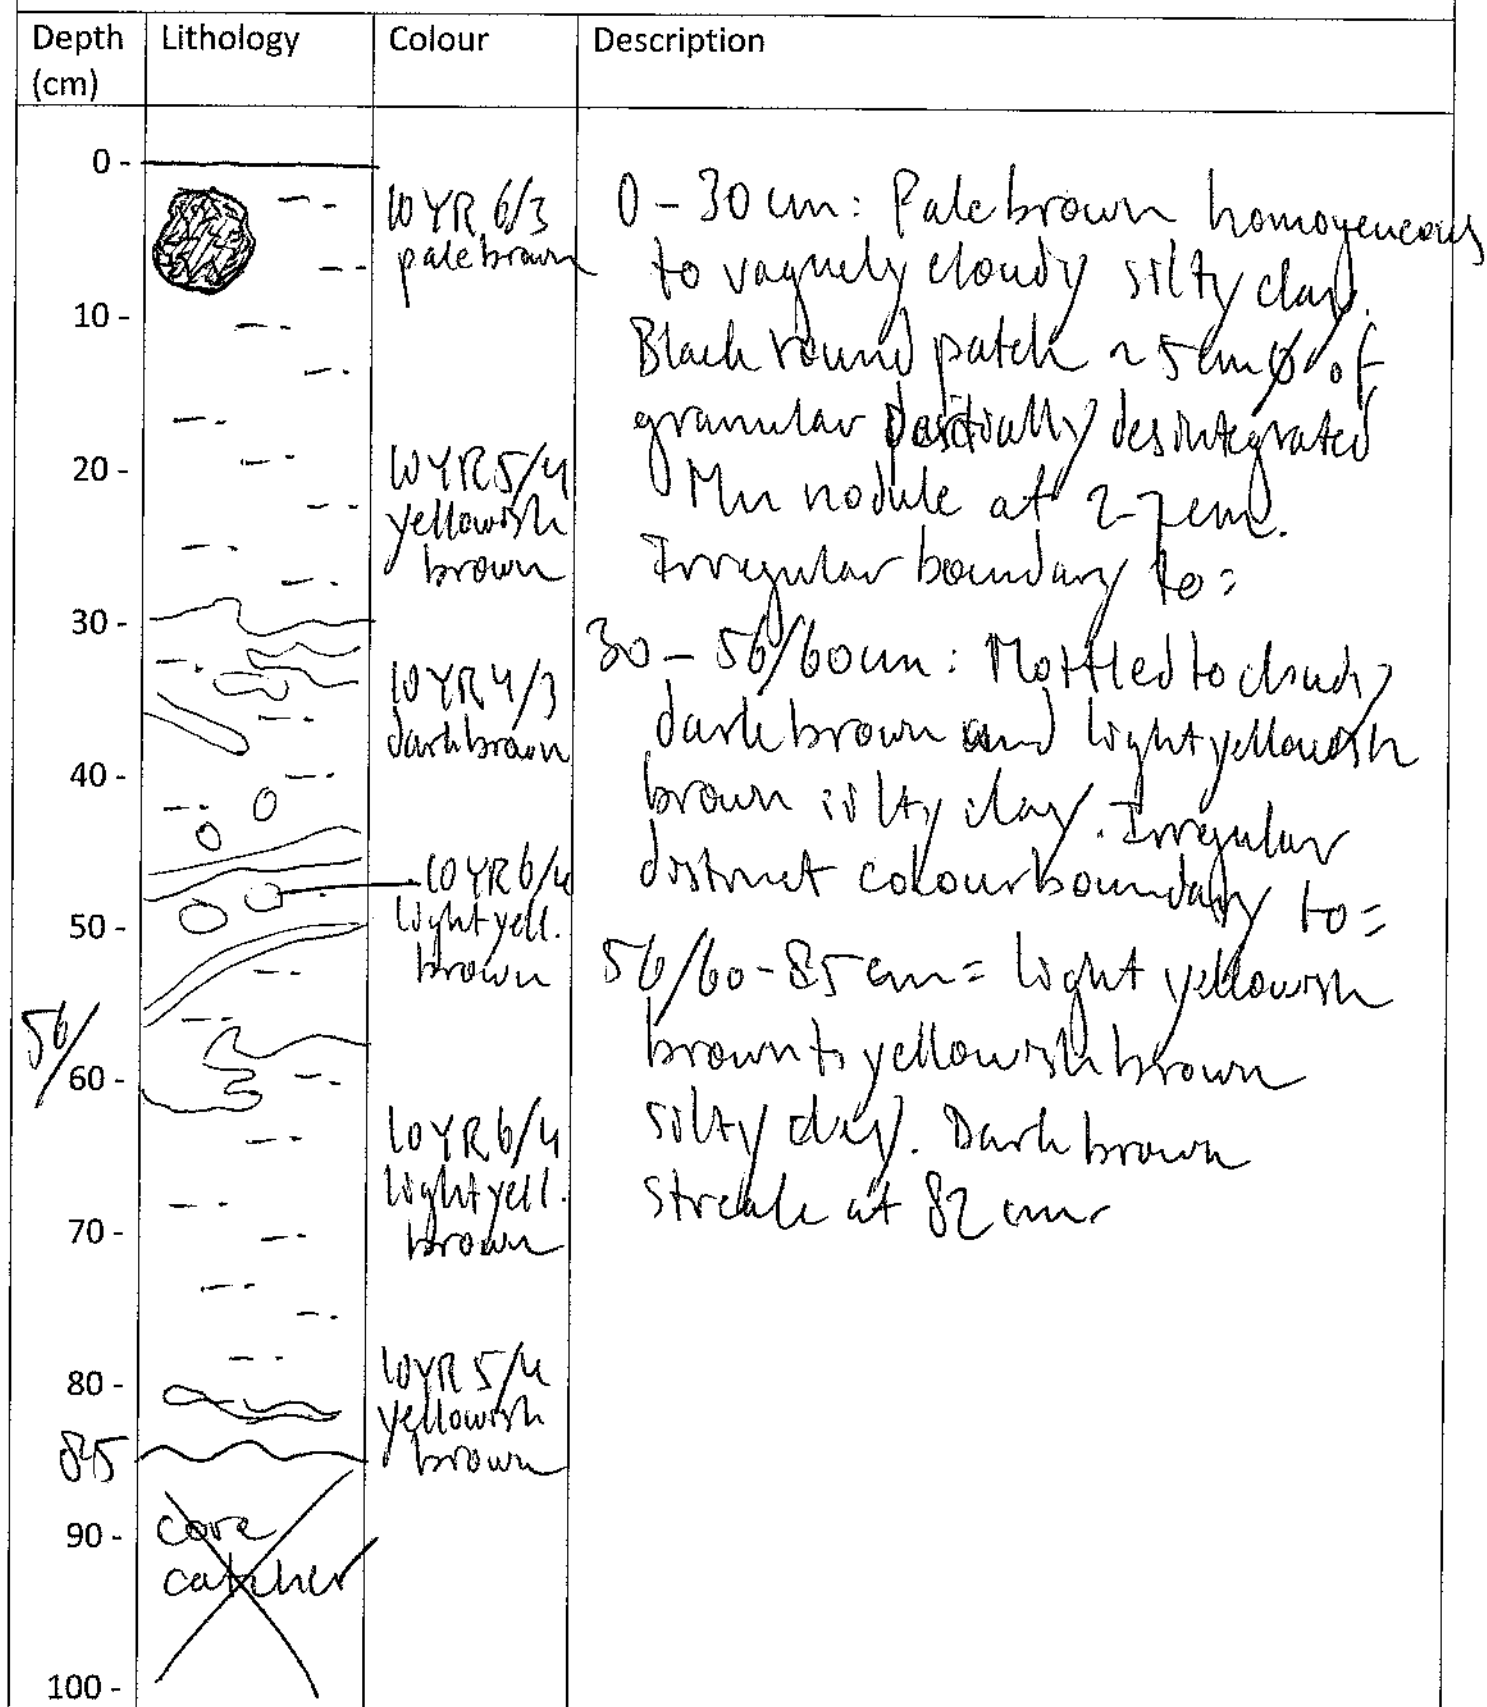 Depth (cm)
Lithology
Colour
Description
0 -
10 -
20 -
30 -
40 -
50 -
56/
60 -
70 -
80 -
85
90 -
100 -
core
catcher
10 YR 6/3
pale brown
10 YR 5/4
yellowish
brown
10 YR 4/3
dark brown
10 YR 6/4
light yell.
brown
10 YR 6/4
light yell.
brown
10 YR 5/4
yellowish
brown
0 - 30 cm: Pale brown homogeneous
to vaguely cloudy silty clay.
Black round patch ~ 5 cm ø of
granular partially desintegrated
Mn nodule at 2-7 cm.
Irregular boundary to:
30 - 56/60 cm: Mottled to cloudy
dark brown and light yellowish
brown silty clay. Irregular
distinct colour boundary to:
56/60 - 85 cm: light yellowish
brown to yellowish brown
silty clay. Dark brown
streak at 82 cm.